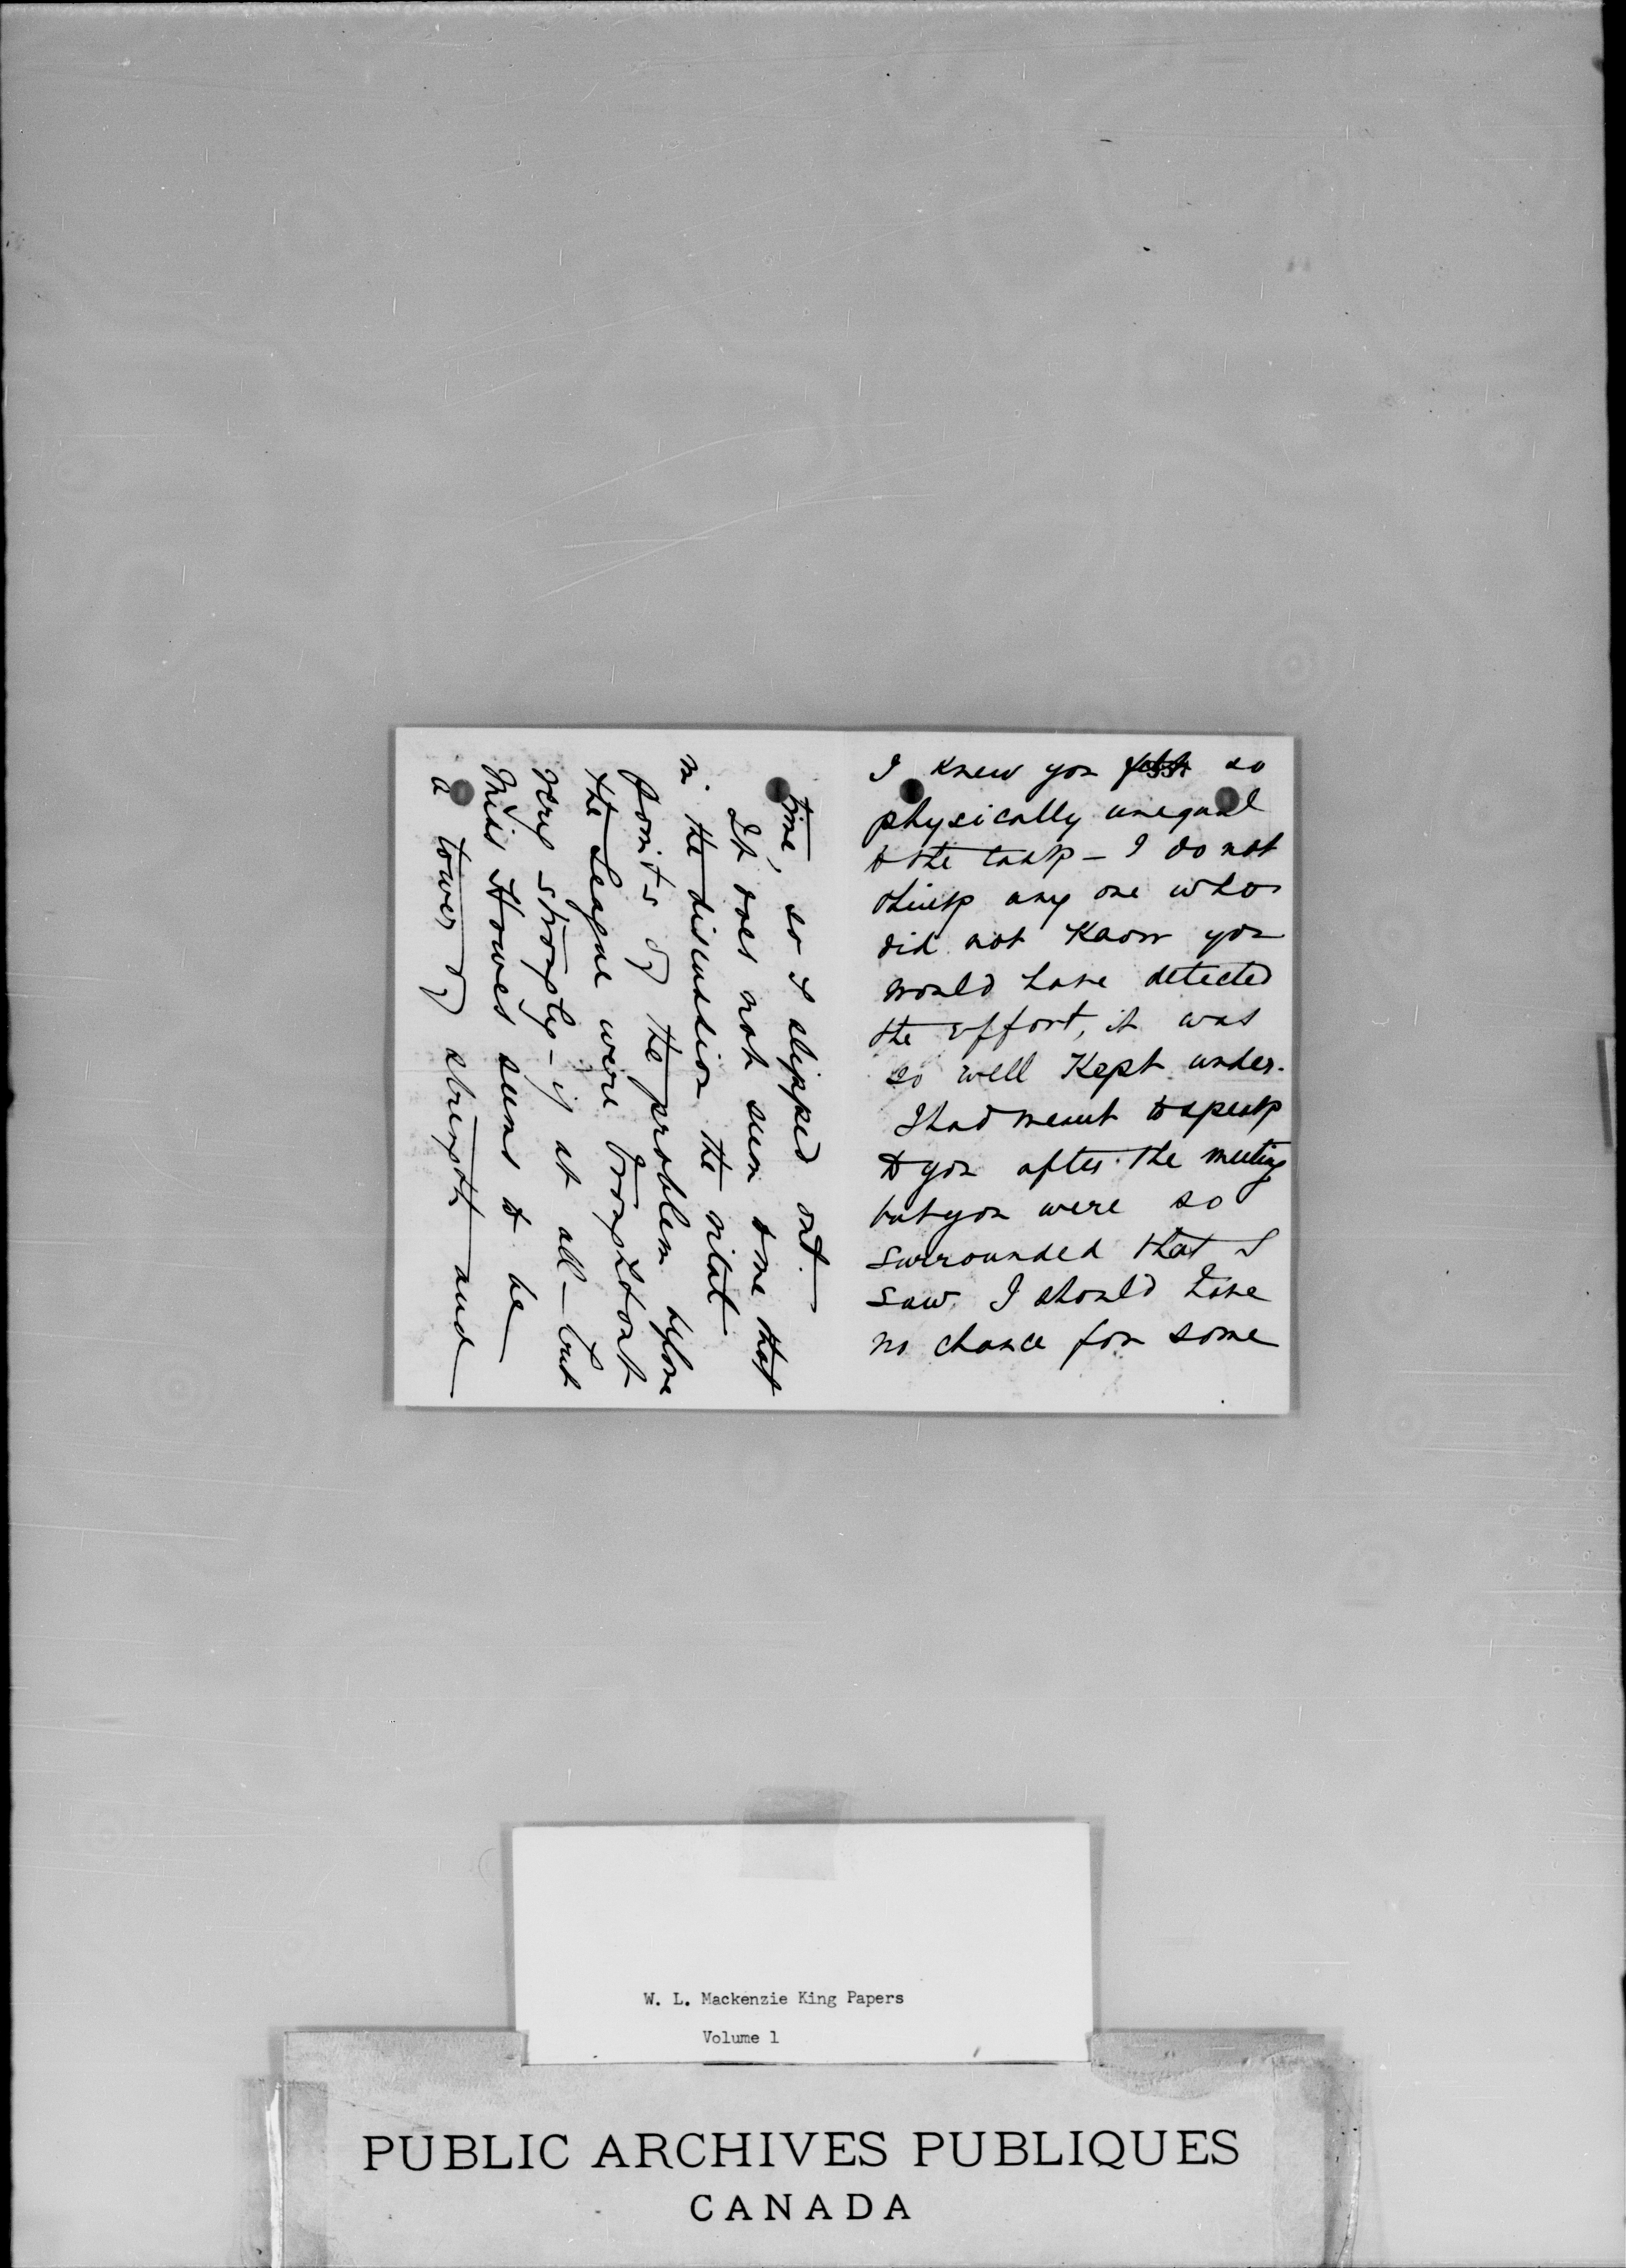 I knew you felt so
physically unequal
to the task – I do not
think any one who
did not know you
would have detected
the effort, it was
so well kept under.
I had meant to speak
to you after the meeting
but you were so
surrounded that I
saw I should have
no chance for some
time, so I slipped out.
It does not seem to me that
in the discussion the vital
points of the problem before
the League were brought out
very strongly – if at all – but
Miss Howes seems to be
a tower of strength and
W. L. Mackenzie King Papers
Volume 1
PUBLIC ARCHIVES PUBLIQUES
CANADA